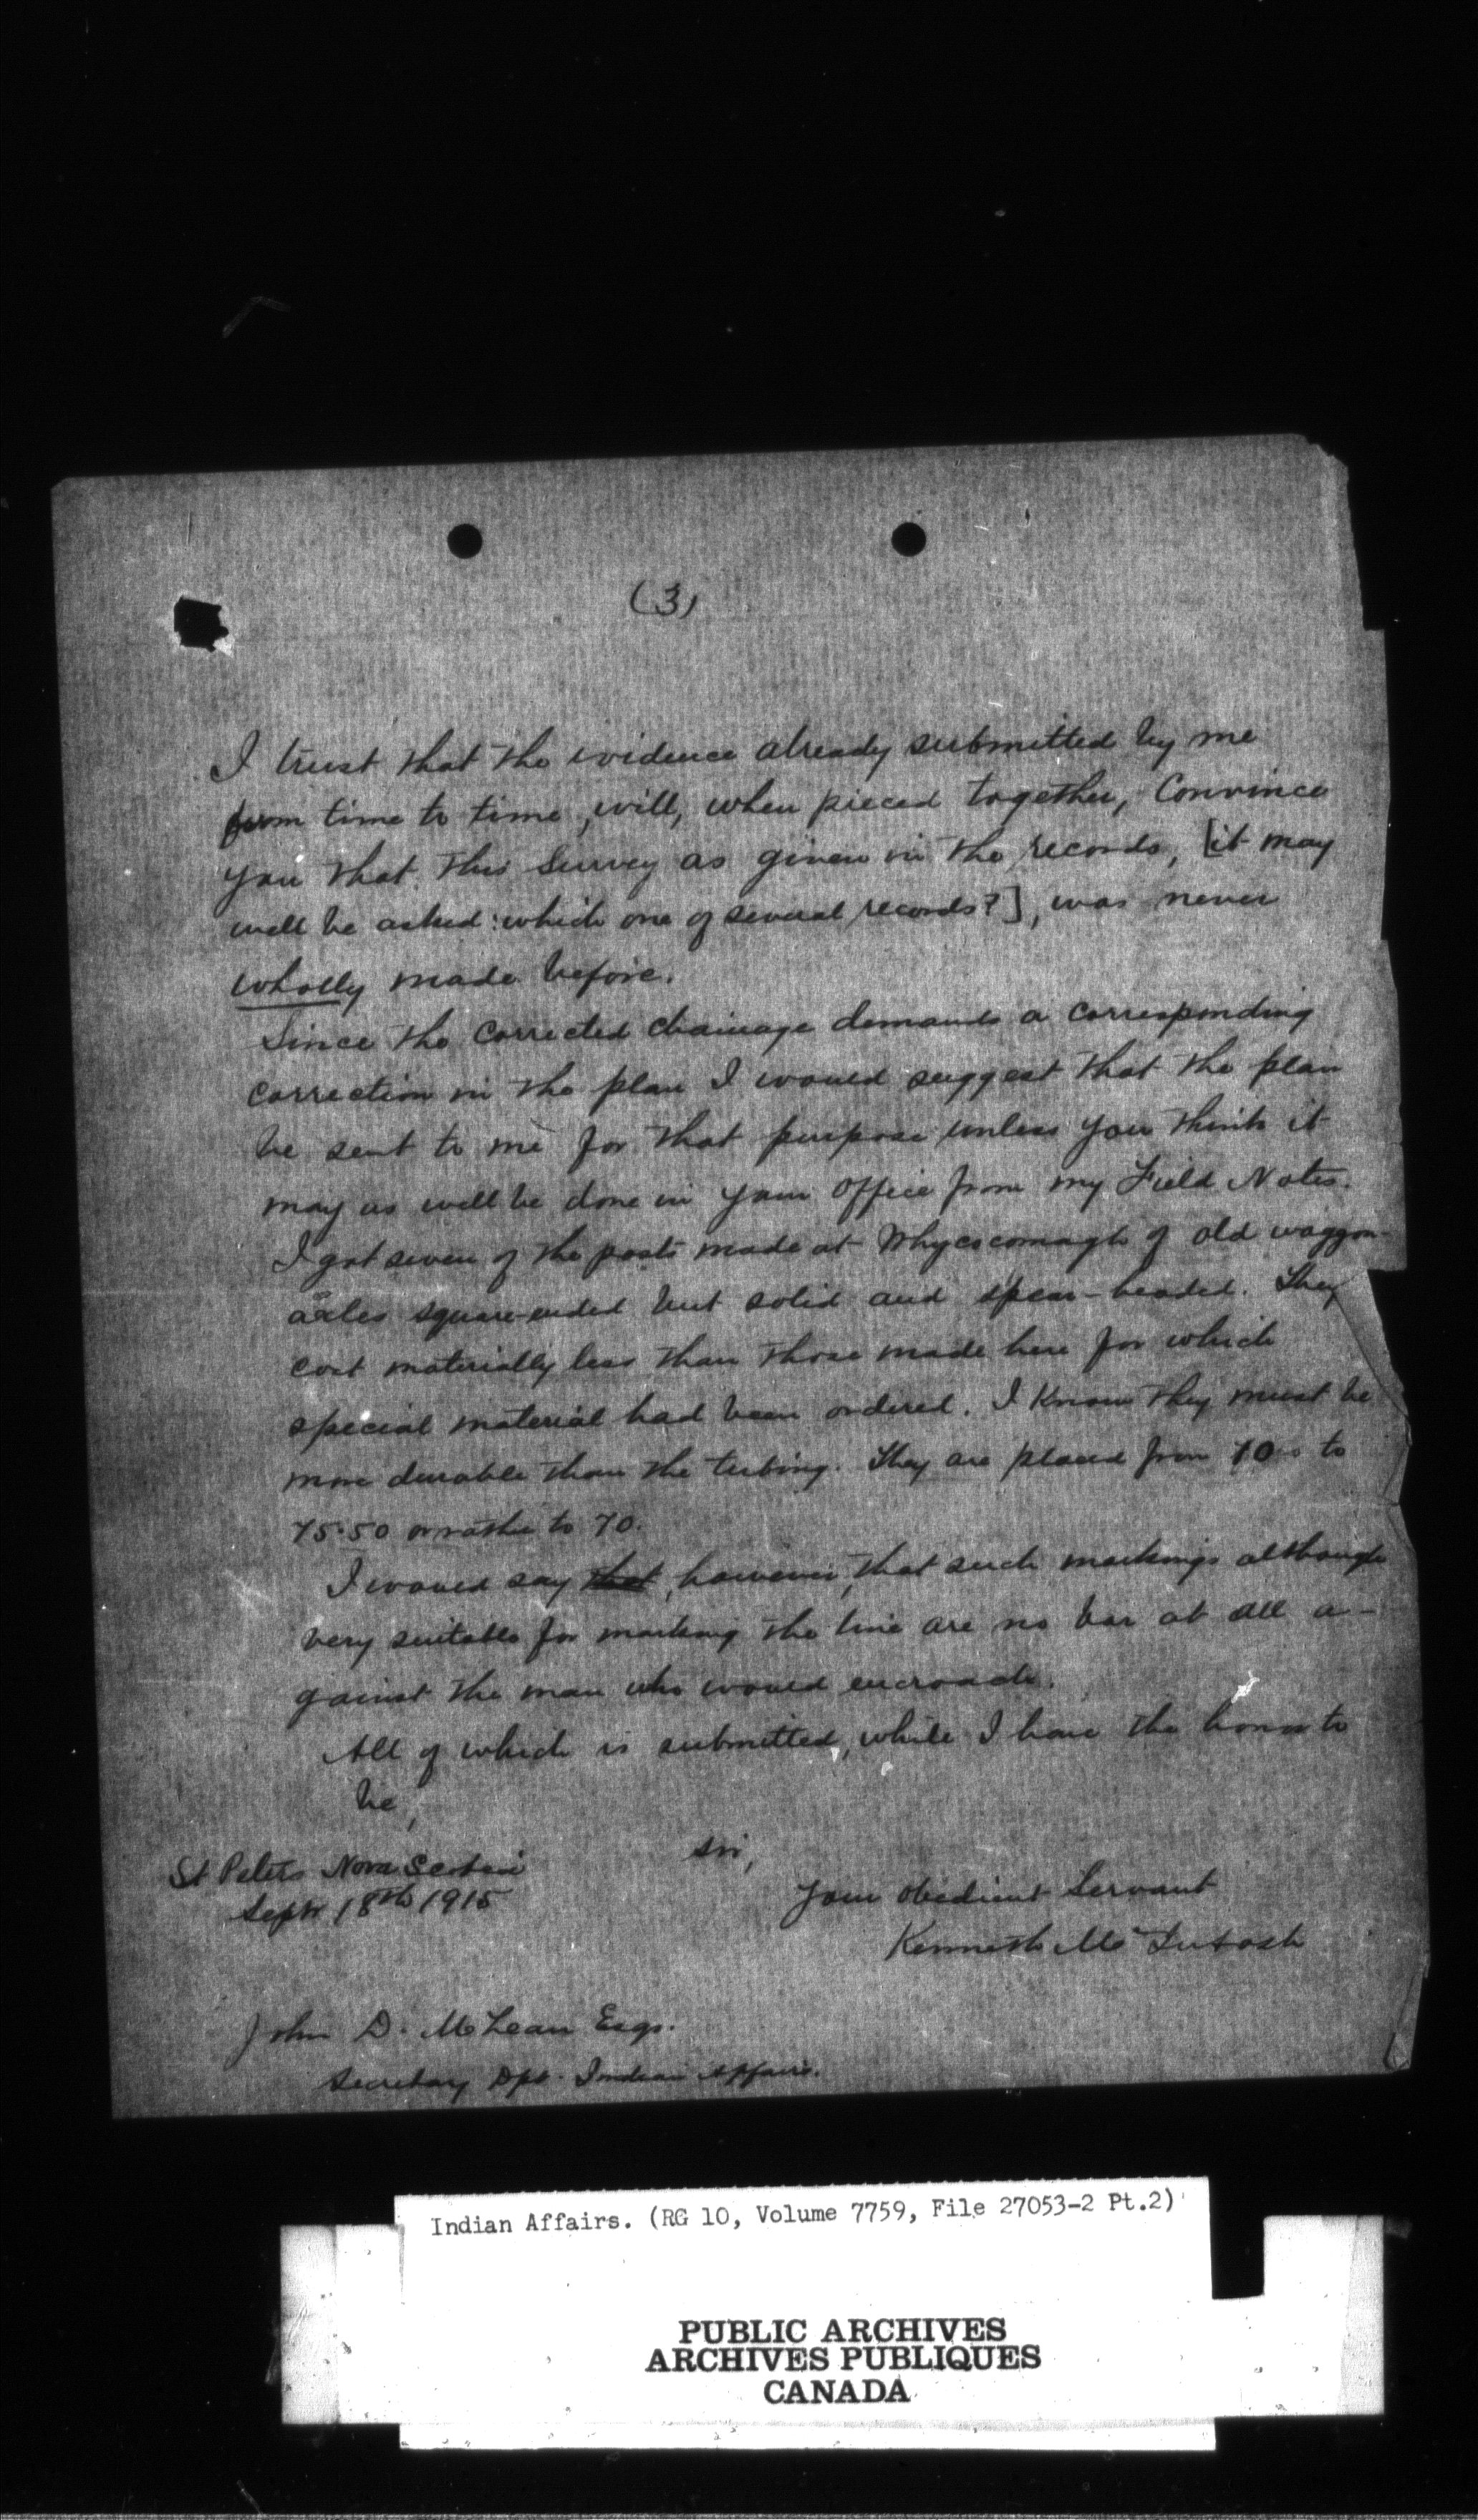 (3)
I trust that the evidence already submitted by me
from time to time, will, when pieced together, Convince
you that this Survey as given in the records, [it may
well be asked: which one of several records?], was never
wholly made before.
Since the corrected chainage demands a corresponding
correction in the plan I would suggest that the plan
be sent to me for that purpose unless you think it
may as well be done in your office from my Field Notes.
I got seven of the posts made at Whycocomagh of old waggon-
axles square-ended but solid and spear-headed. They
cost materially less than those made here for which
special material had been ordered. I Know they must be
more durable than the tubing. They are placed from to
75.50 or rather to 70.
I would say that, however, that such markings although
very suitable for marking the line are no bar at all a-
gainst the man who would encroach.
All of which is submitted, while I have the honor to
be,
Sir,
St Peters Nova Scotia
Sept 18th 1915
Your obedient Servant
Kenneth McIntosh
John D. McLean Esqr.
Secretary Dpt. Indian Affairs.
Indian Affairs. (RG 10, Volume 7759, File 27053-2 Pt.2)
PUBLIC ARCHIVES
ARCHIVES PUBLIQUES
CANADA